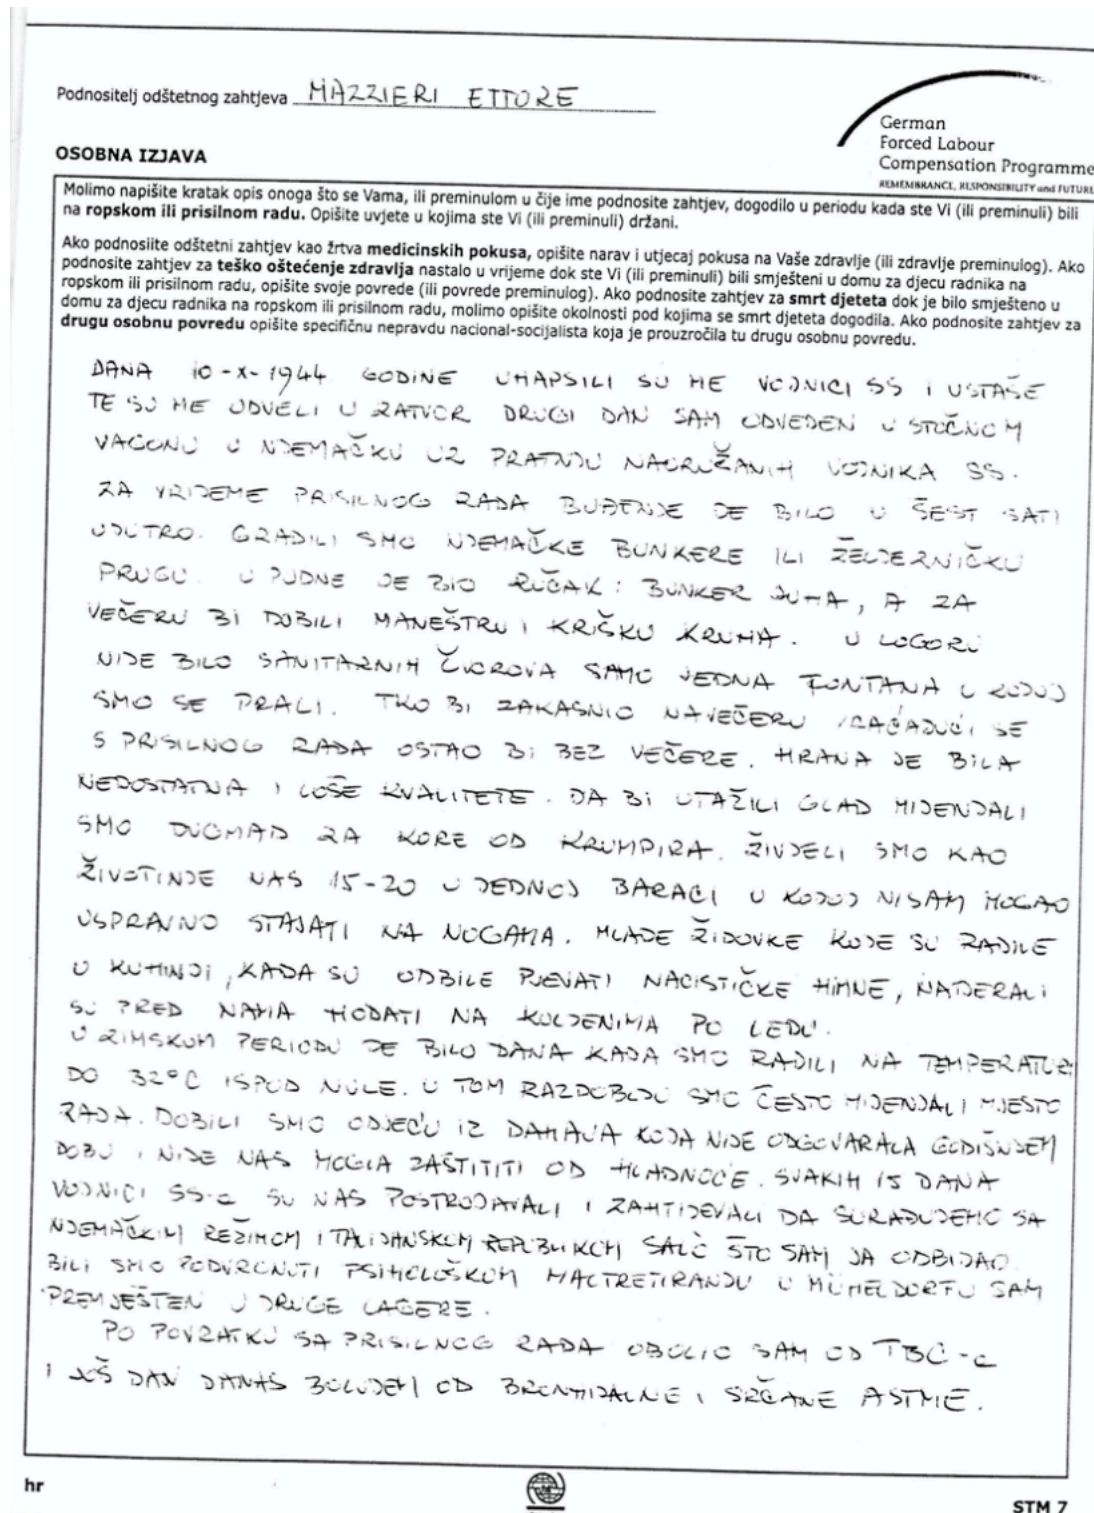 Podnositelj odštetnog zahtjeva MAZZIERI ETTORE
German
Forced Labour
Compensation Programme
REMEMBRANCE, RESPONSIBILITY and FUTURE
OSOBNA IZJAVA
Molimo napišite kratak opis onoga što se Vama, ili preminulom u čije ime podnosite zahtjev, dogodilo u periodu kada ste Vi (ili preminuli) bili
na ropskom ili prisilnom radu. Opišite uvjete u kojima ste Vi (ili preminuli) držani.
Ako podnosiite odštetni zahtjev kao žrtva medicinskih pokusa, opišite narav i utjecaj pokusa na Vaše zdravlje (ili zdravlje preminulog). Ako
podnosite zahtjev za teško oštećenje zdravlja nastalo u vrijeme dok ste Vi (ili preminuli) bili smješteni u domu za djecu radnika na
ropskom ili prisilnom radu, opišite svoje povrede (ili povrede preminulog). Ako podnosite zahtjev za smrt djeteta dok je bilo smješteno u
domu za djecu radnika na ropskom ili prisilnom radu, molimo opišite okolnosti pod kojima se smrt djeteta dogodila. Ako podnosite zahtjev za
drugu osobnu povredu opišite specifičnu nepravdu nacional-socijalista koja je prouzročila tu drugu osobnu povredu.
DANA 10-X-1944 GODINE UHAPSILI SU ME VOJNICI SS I USTAŠE
TE SU ME ODVELI U ZATVOR DRUGI DAN SAM ODVEDEN U STOČNOM
VAGONU U NJEMAČKU UZ PRATNJU NAORUŽANIH VOJNIKA SS.
ZA VRIJEME PRISILNOG RADA BUĐENJE JE BILO U ŠEST SATI
UJUTRO. GRADILI SMO NJEMAČKE BUNKERE ILI ŽELJEZNIČKU
PRUGU. U PUDNE JE BIO RUČAK: BUNKER JUHA, A ZA
VEČERU BI DOBILI MANEŠTRU I KRIŠKU KRUHA. U LOGORU
NIJE BILO SANITARNIH ČVOROVA SAMO JEDNA FONTANA U KOJOJ
SMO SE PRALI. TKO BI ZAKASNIO NA VEČERU VRAĆAJUĆI SE
S PRISILNOG RADA OSTAO BI BEZ VEČERE. HRANA JE BILA
NEDOSTATNA I LOŠE KVALITETE. DA BI UTAŽILI GLAD MIJENJALI
SMO DUOMAD ZA KORE OD KRUMPIRA. ŽIVJELI SMO KAO
ŽIVOTINJE NAS 15-20 U JEDNOJ BARACI U KOJOJ NISAM MOGAO
USPRAVNO STAJATI NA NOGAMA. MLADE ŽIDOVKE KOJE SU RADILE
U KUHINJI, KADA SU ODBILE PJEVATI NACISTIČKE HIMNE, NATJERALI
SU PRED NAMA HODATI NA KOLJENIMA PO LEDU.
U ZIMSKOM PERIODU JE BILO DANA KADA SMO RADILI NA TEMPERATURI
DO 32°C ISPOD NULE. U TOM RAZDOBLJU SMO ČESTO MIJENJALI MJESTO
RADA. DOBILI SMO ODJEĆU IZ DAHAUA KOJA NIJE ODGOVARALA GODIŠNJEM
DOBU I NIJE NAS MOGLA ZAŠTITITI OD HLADNOĆE. SVAKIH 15 DANA
VOJNICI SS-a SU NAS POSTROJAVALI I ZAHTIJEVALI DA SURAĐUJEMO SA
NJEMAČKIM REŽIMOM I TALIJANSKOM REPUBLIKOM SALÒ ŠTO SAM JA ODBIJAO.
BILI SMO PODVRGNUTI PSIHOLOŠKOM MALTRETIRANJU U MÜHELDORFU SAM
PREMJEŠTEN U DRUGE LAGERE.
PO POVRATKU SA PRISILNOG RADA OBOLIO SAM OD TBC-a
I JOŠ DAN DANAS BOLUJEM OD BRONHIJALNE I SRČANE ASTME.
hr
STM 7